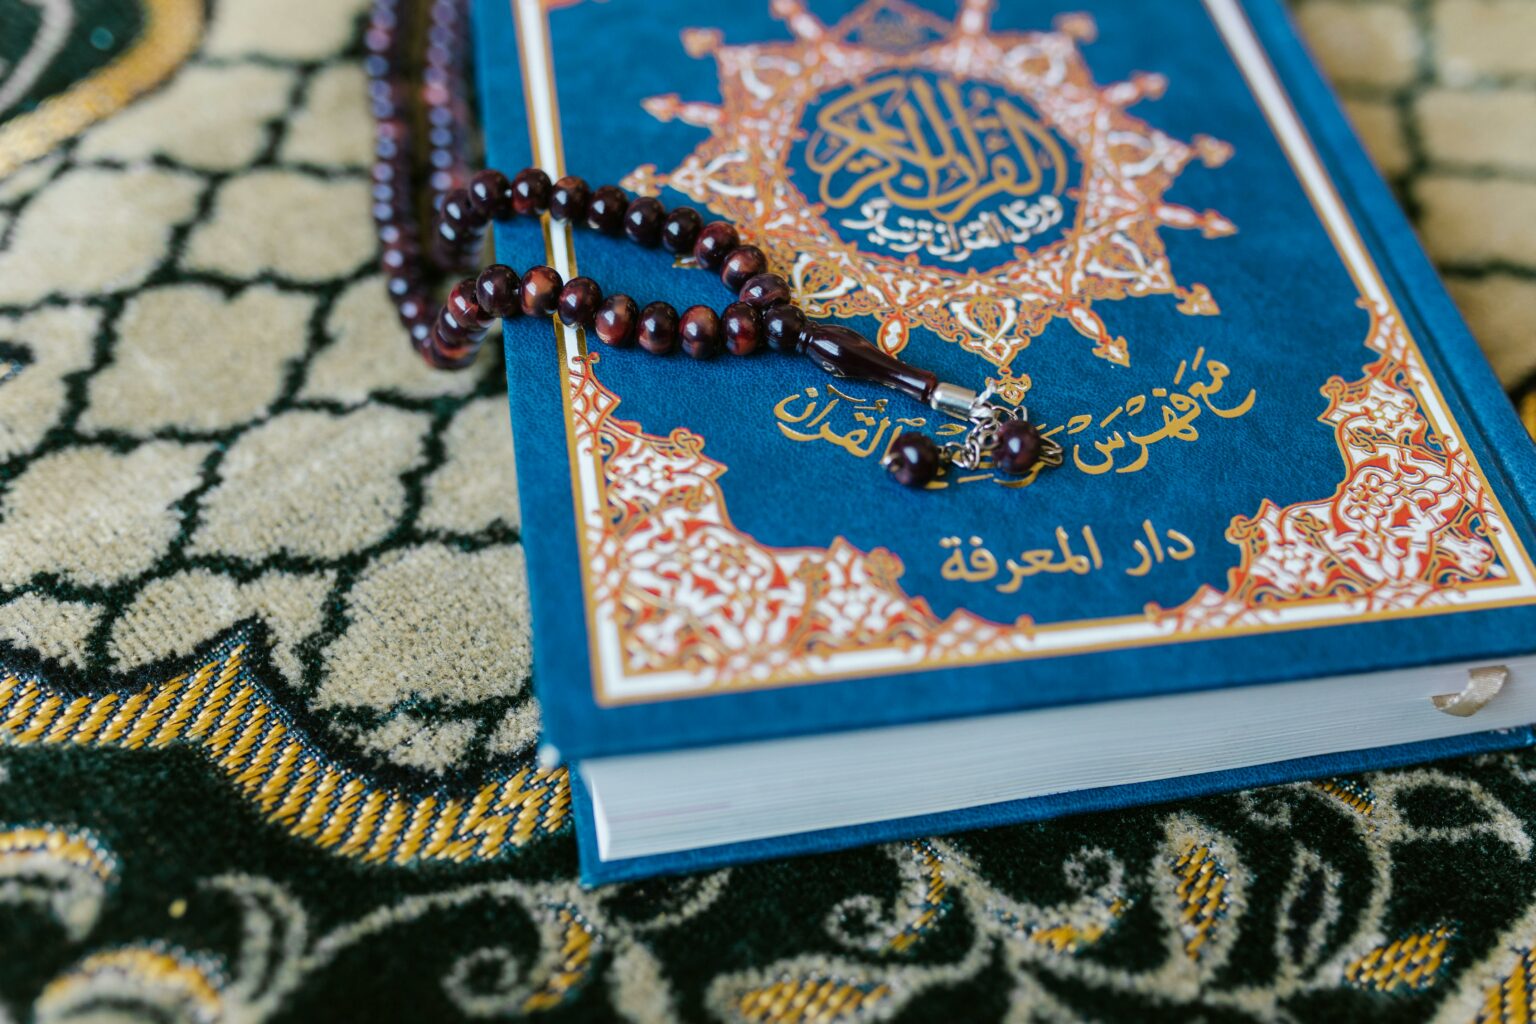 القرآن الكريم
ورتل القرآن ترتيلا
مَعَ فِهْرِسْ القُرآن
دار المعرفة